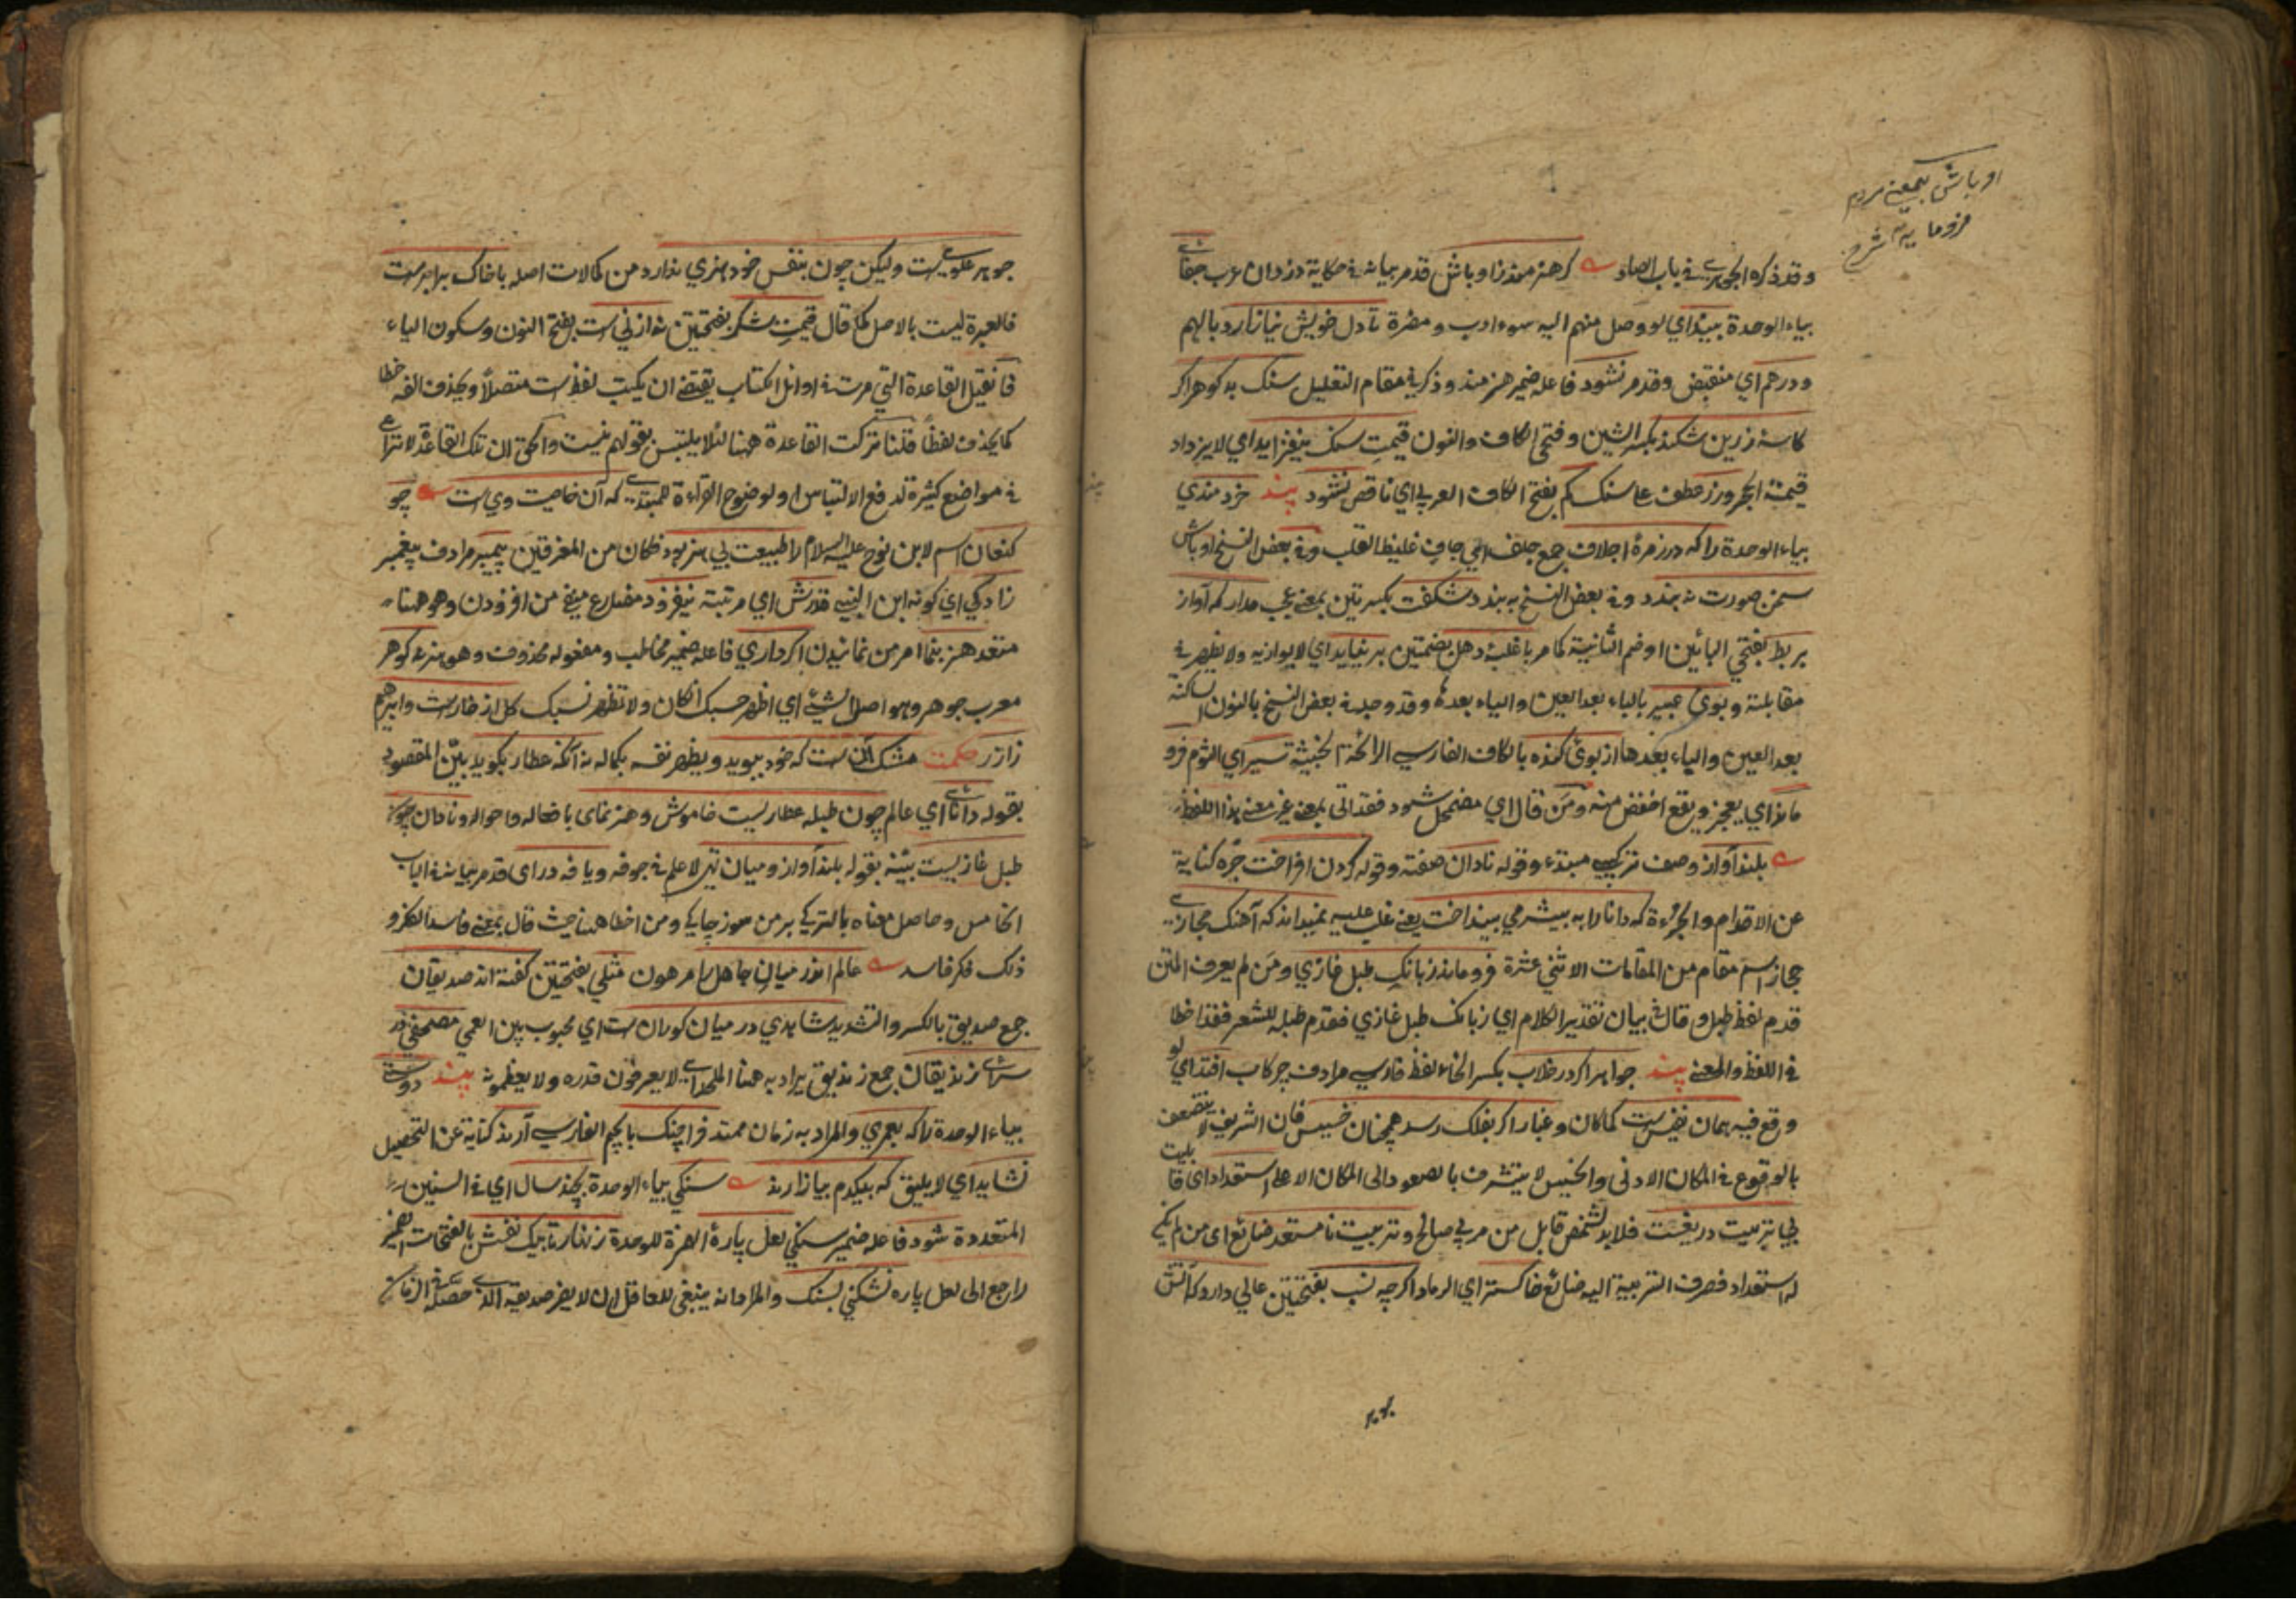 اوباش بمعنی مردم
فرومایه شرح
وقد ذكره الجوهري في باب الصاد كر هنرمند ز اوباش قد مر بيانه في حكاية دزدان عرب جفائي
بياء الوحدة بيند اي لو وصل منهم اليه سوء ادب ومضرة تا دل خويش نيازارد بالهم
ودرهم اي منقبض وقد مر نشود فاعله ضمير هنرمند وذكر في مقام التعليل سنك بد كوهر اكر
كاسه زرين شكند بكسر الشين وفتحي الكاف والنون قيمت سنك نيفزايد اي لا يزداد
قيمة الحجر وزر عطف على سنك كم بفتح الكاف العربي اي ناقص نشود پند خردمندي
بياء الوحدة را كه در زمرهٔ اجلاف جمع جلف اي جاف غليظ القلب وفي بعض النسخ اوباش
سخن صورت نه بندد وفي بعض النسخ به بندد شكفت بكسرتين بمعنى عجب مدار كه آواز
بربط بفتحي البائين او ضم الثانية كما مر با غلبهٔ دهل بضمتين بر نيايد اي لا يوازيه ولا يظهر في
مقابلته وبوي عبير بالباء بعد العين والياء بعده وقد وجد في بعض النسخ بالنون الساكنة
بعد العين والياء بعدها از بوي كنده بالكاف الفارسي الرائحة الخبيثة سير اي الثوم فرو
ماند اي يعجز ويقع اخفض منه ومن قال اي مضمحل شود فقد اتى بمعنى غير معنى هذا اللفظ
بلند آواز وصف تركيبي مبتدء وقوله نادان صفته وقوله كردن افراخت خبره كناية
عن الاقدام والجرءة كه دانا را به بيشرمي بينداخت يعني غلب عليه نميداند كه آهنك حجازي
حجاز اسم مقام من المقامات الاثني عشرة فرو ماند ز بانك طبل غازي ومن لم يعرف المتن
قدم لفظ طبل وقال في بيان تقدير الكلام اي ز بانك طبل غازي فقدم طبله للشعر فقد اخطا
في اللفظ والمعنى پند جواهر اكر در خلاب بكسر الخاء لفظ فارسي مرادف چركاب افتد اي لو
وقع فيه همان نفيس است كما كان وغبار اكر بفلك رسد همچنان خسيس فان الشريف لا يتضعف
بالوقوع في المكان الادنى والخسيس لا يتشرف بالصعود الى المكان الاعلى استعداد اي قابليت
بي تربيت دريغست فلا بد لشخص قابل من مربي صالح وتربيت نا مستعد ضائع اي من لم يكن
له استعداد فصرف التربية اليه ضائع خاكستر اي الرماد اكرچه نسب بفتحتين عالي دارد كه آتش
جوهر علويست وليكن چون بنفس خود هنري ندارد من كمالات اصله با خاك برابرست
فالعبرة ليست بالاصل كما قال قيمت شكر بفتحتين نه از ني است بفتح النون وسكون الياء
فان قيل القاعدة التي مرت في اوائل الكتاب يقتضي ان يكتب لفظ است متصلاً ويحذف الفه خطا
كما يحذف لفظاً قلنا تركت القاعدة ههنا لئلا يلتبس بقولهم نيست والحق ان تلك القاعدة لا تراعى
في مواضع كثيرة لدفع الالتباس او لوضوح القراءة للمبتدي كه آن خاصيت وي است چو
كنعان اسم لابن نوح عليه السلام را طبيعت بي هنر بود فكان من المغرقين پيمبر مرادف پيغمبر
زادكي اي كونه ابن النبي قدرش اي مرتبته نيفزود مضارع منفي من افزودن وهو ههنا
متعد هنر بنما امر من نمانيدن اكر داري فاعله ضمير مخاطب ومفعوله محذوف وهو هنر نه كوهر
معرب جوهر وهو اصل الشيء اي اظهر حسبك ان كان ولا تظهر نسبك كل از خارست وابراهيم
ز آزر حكمت مشك آن ست كه خود ببويد ويظهر نفسه بكماله نه آنكه عطار بكويد بيّن المقصود
بقوله دانا اي عالم چون طبله عطاريست خاموش وهنرنماى بافعاله واحواله ونادان چون
طبل غازيست بيّنه بقوله بلند آواز وميان تهي لا علم في جوفه ويافه دراى قد مر بيانه في الباب
الخامس وحاصل معناه بالتركي بر من سوز چاليجي ومن اخطا ههنا حيث قال بمعنى فاسد الفكر و
ذلك فكر فاسد عالم اندر ميان جاهل را مر هون مثلي بفتحتين كفته اند صديقان
جمع صديق بالكسر والتشديد شاهدي در ميان كورانست اي محبوب بين العمي مصحفي در
سراى زنديقان جمع زنديق يراد به ههنا الملحد اي لا يعرفون قدره ولا يعظمونه پند دوستي
بياء الوحدة را كه بعمري والمراد به زمان ممتد فرا چنك بالجيم الفارسي آرند كناية عن التحصيل
نشايد اي لا يليق كه بيكدم بيازارند سنكي بياء الوحدة بچند سال اي في السنين
المتعددة شود فاعله ضمير سنكي لعل پارهٔ الهمزة للوحدة زنهار تا بيك نفسش بالفتحات الضمير
راجع الى لعل پاره نشكني بسنك والمراد انه ينبغي للعاقل ان لا يضر صديقه الذي حصله في الزمان